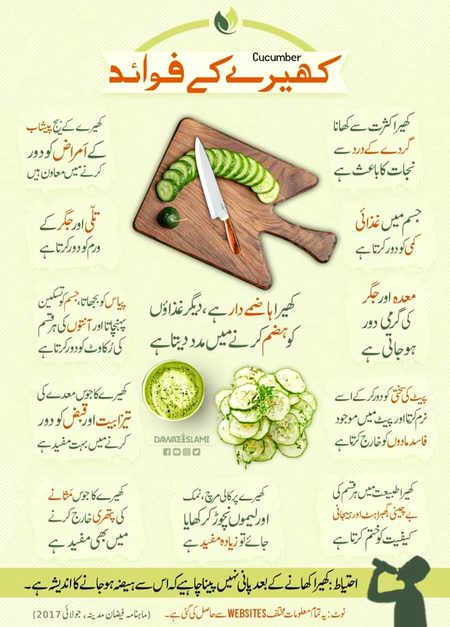 Cucumber
کھیرے کے فوائد
کھیرا کثرت سے کھانا
گردے کے درد سے
نجات کا باعث ہے
کھیرے کے بیج پیشاب
کے اَمراض کو دور
کرنے میں معاون ہیں
جسم میں غذائی
کمی کو دور کرتا ہے
تلّی اور جگر کے
ورم کو دور کرتا ہے
معدہ اور جگر
کی گرمی دور
ہو جاتی ہے
کھیرا ہاضمے دار ہے، دیگر غذاؤں
کو ہضم کرنے میں مدد دیتا ہے
پیاس کو بجھاتا، جسم کو تسکین
پہنچاتا اور آنتوں کی ہر قسم
کی رُکاوٹ کو دور کرتا ہے
پیٹ کی سختی کو دور کر کے اسے
نرم کرتا اور پیٹ میں موجود
فاسد مادوں کو خارج کرتا ہے
کھیرے کا جوس معدے کی
تیزابیت اور قبض کو دور
کرنے میں بہت مفید ہے
DAWATEISLAMI
کھیرا طبیعت میں ہر قسم کی
بے چینی گھبراہٹ اور ہیجانی
کیفیت کو ختم کرتا ہے
کھیرے پر کالی مرچ، نمک
اور لیموں نچوڑ کر کھایا
جائے تو زیادہ مفید ہے
کھیرے کا جوس مَثانے
کی پتھری خارج کرنے
میں بھی مفید ہے
احتیاط: کھیرا کھانے کے بعد پانی نہیں پینا چاہیے کہ اس سے ہیضہ ہو جانے کا اندیشہ ہے۔
نوٹ: یہ تمام معلومات مختلف WEBSITES سے حاصل کی گئی ہے۔ (ماہنامہ فیضانِ مدینہ، جولائی 2017)